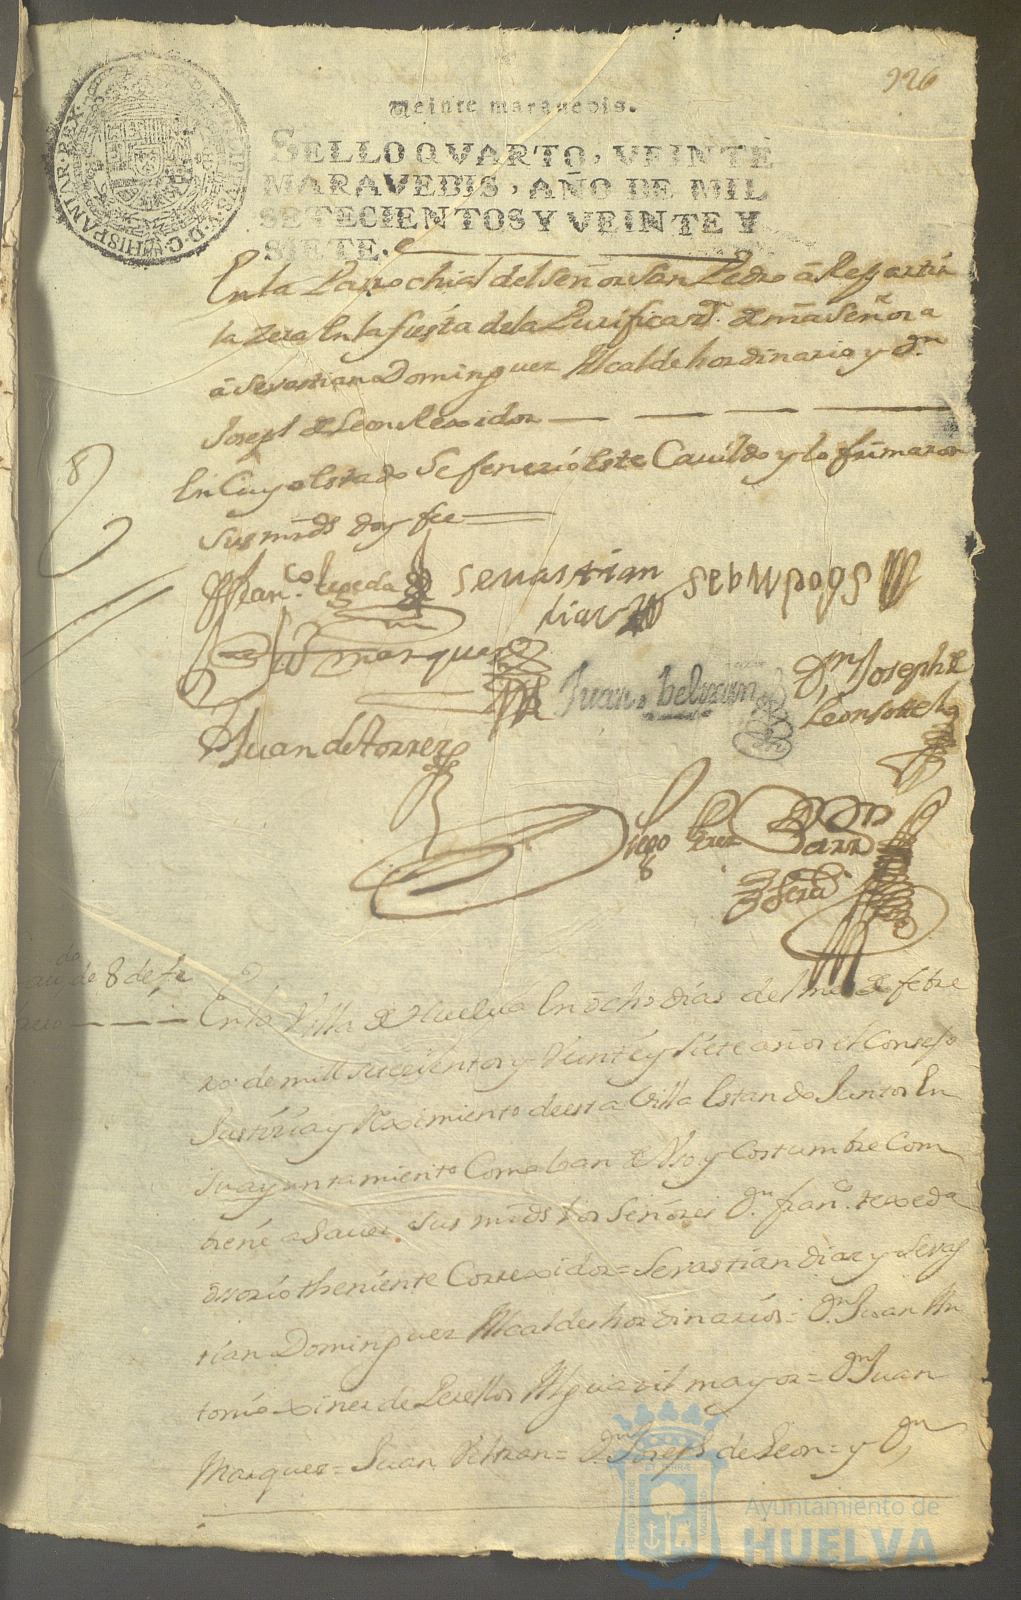 926
Veinte maravedis.
SELLO QVARTO, VEINTE
MARAVEDIS, AÑO DE MIL
SETECIENTOS Y VEINTE Y
SIETE.
HISPANIARVM REX
En la Parrochial del señor san Pedro â Repartir
la zera En la fiesta dela Purificaz.n de nra Señora
â Sevastian Dominguez Alcalde hordinario y Dn
Joseph de Leon Rexidor
En Cuyo Estado se fenezió este Cavildo y lo firmaron
sus mrds doy fee
Fran.co texeda
sevastian
diaz
Marquez
Juan beltran
Dn Joseph de
Leon
Juan de torres
Diego
de 8 de fe
En la Villa de Huelva En ocho dias del mes de febre
ro de mill setecientos y Veinte y siete años el Consejo
Justizia y Reximiento de esta Villa Estando Juntos En
su ayuntamiento Como lo an de Vso y Costumbre Com
biene a saver sus mrds los señores Dn fran.co texeda
osorio theniente Correxidor = Sevastian diaz y Sevas
tian Dominguez Alcaldes hordinarios = Dn Juan An
tonio xinez de Alguazil mayor = Dn Juan
Marquez = Juan Veltran = Dn Joseph de Leon = y Dn
Ayuntamiento de
HUELVA